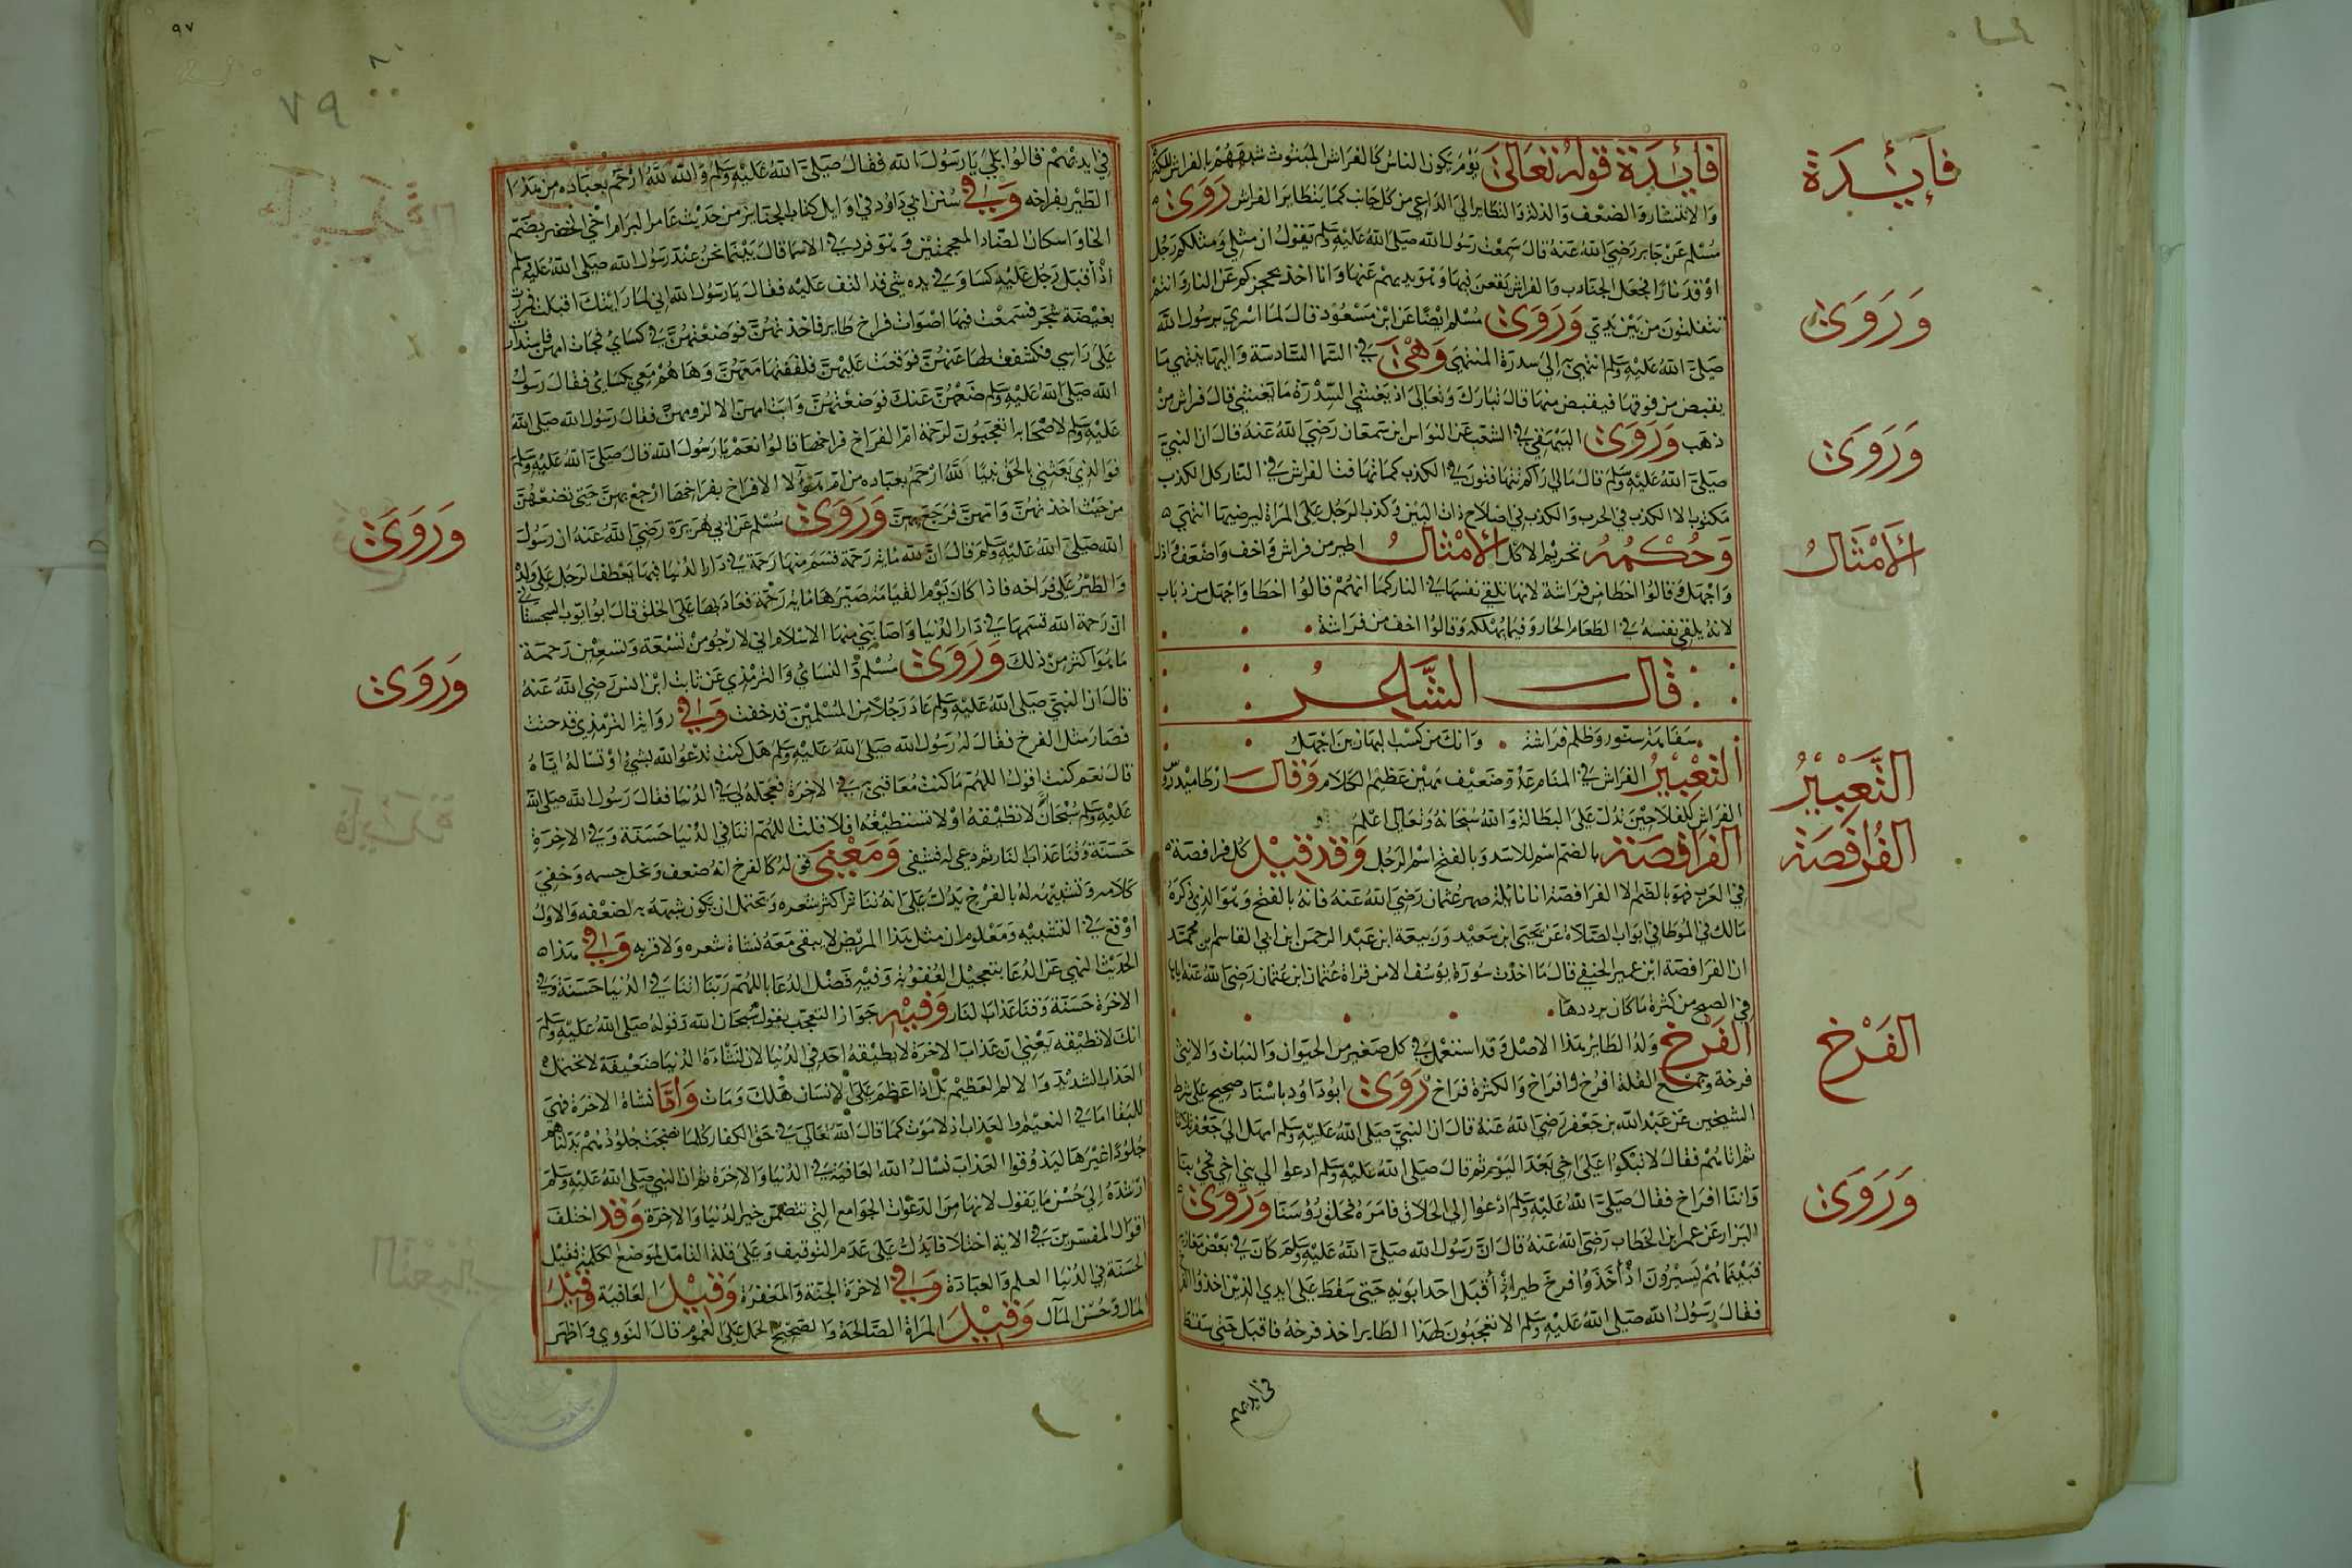 فائدة قوله تعالى يوم يكون الناس كالفراش المبثوث شبههم بالفراش للكثرة
والانتشار والضعف والذلة والتطاير الي الداعي من كل جانب كما يتطاير الفراش روى
مسلم عن جابر رضي الله عنه قال سمعت رسول الله صلى الله عليه وسلم يقول ان مثلي ومثلكم كرجل
اوقد نارا فجعل الجنادب والفراش يقعن فيها وهو يذبهن عنها وانا اخذ بحجزكم عن النار وانتم
تتفلتون من بين يدي وروى مسلم ايضا عن ابن مسعود قال لما اسري برسول الله
صلى الله عليه وسلم انتهي به الى سدرة المنتهى وهي في السما السادسة واليها ينتهي ما
يقبض من فوقها فيقبض منها قال تبارك وتعالى اذ يغشي السدرة ما يغشي قال فراش من
ذهب وروى البيهقي في الشعب عن النواس ابن سمعان رضي الله عنه قال ان النبي
صلى الله عليه وسلم قال مالي راكم تتهافتون في الكذب كما تتهافت الفراش في النار كل الكذب
مكتوب الا الكذب في الحرب والكذب في اصلاح ذات البين وكذب الرجل على المراة ليرضيها انتهى
وحكمه تحريم الاكل الأمثال اطير من فراش واخف واضعف واذل
واجهل وقالوا اخطا من فراشة لانها تلقي نفسها في النار كما انهم قالوا اخطا واجهل من ذباب
لانه يلقي نفسه في الطعام الحار وفيما يهلكه وقالوا اخف من فراشة
قال الشاعر
سفاهة سنور وظلم فراشة وانك من كلب المهازين اجهل
التعبير الفراش في المنام عدو ضعيف مهين عظيم الكلام وقال ارطاميدروس
الفراش للفلاحين تدل على البطالة والله سبحانه وتعالى اعلم
الفرافصة بالضم اسم للاسد وبالفتح اسم الرجل وقد قيل كل فرافصة
في العرب فهو بالضم الا الفرافصة ابا نائلة صهر عثمان رضي الله عنه فانه بالفتح وهو الذي ذكره
مالك في الموطا في ابواب الصلاة عن يحيى ابن سعيد وربيعة ابن عبد الرحمن ابن ابي القاسم بن محمد
ان الفرافصة ابن عمير الحنفي قال ما اخذت سورة يوسف الا من قراة عثمان ابن عثمان رضي الله عنه اياها
في الصبح من كثرة ما كان يرددها
الفرخ ولد الطائر هذا الاصل وقد استعمل في كل صغير من الحيوان والنبات والانثى
فرخة وجمع القلة افرخ وافراخ والكثرة فراخ روى ابو داود باسناد صحيح على شرط
الشيخين عن عبد الله بن جعفر رضي الله عنه قال ان النبي صلى الله عليه وسلم امهل الى جعفر ثلاثا
ثم اتاهم فقال لا تبكوا على اخي بعد اليوم ثم قال صلى الله عليه وسلم ادعوا الي بني اخي فجئ بنا
واننا افراخ فقال صلى الله عليه وسلم ادعوا الي الحلاق فامره فحلق رؤسنا وروى
البزار عن عمر ابن الخطاب رضي الله عنه قال ان رسول الله صلى الله عليه وسلم كان في بعض مغازيه
فبينما هم يسيرون اذ أخذوا فرخ طير أقبل احد ابويه حتى سقط على ايدي الذين اخذوا الفرخ
فقال رسول الله صلى الله عليه وسلم الا تعجبون لهذا الطاير اخذ فرخه فاقبل حتى سقط
في ايديهم
فائدة
وروى
وروى
الأمثال
التعبير
الفرافصة
الفرخ
وروى
٩٧
٧٩
في ايديهم قالوا بلى يا رسول الله فقال صلى الله عليه وسلم والله لله ارحم بعباده من هذا
الطير بفراخه وفي سنن ابي داود في اوايل كتاب الجنايز من حديث عامر الرام اخي الخضر بضم
الخا واسكان الضاد المعجمتين وهو فرد في الاسما قال بينما نحن عند رسول الله صلى الله عليه وسلم
اذ أقبل رجل عليه كسا وفي يده شي قد التف عليه فقال يا رسول الله اني لما رايتك اقبلت فمررت
بغيضة شجر فسمعت فيها اصوات فراخ طاير فاخذتهن فوضعتهن في كساي فجات امهن فاستدارت
على راسي فكشفت لها عنهن فوقعت عليهن فلففتها معهن وها هم معي بكساي فقال رسول
الله صلى الله عليه وسلم ضعهن عنك فوضعتهن وابت امهن الا لزومهن فقال رسول الله صلى الله
عليه وسلم لاصحابه اتعجبون لرحمة ام الفراخ فراخها قالوا نعم يا رسول الله قال صلى الله عليه وسلم
فوالذي بعثني بالحق نبيا لله ارحم بعباده من ام هؤلا الافراخ بفراخها ارجع بهن حتى تضعهن
من حيث اخذتهن وامهن فرجع بهن وروى مسلم عن ابي هريرة رضي الله عنه ان رسول
الله صلى الله عليه وسلم قال ان لله ماية رحمة قسم منها رحمة في دار الدنيا فبها يعطف الرجل على ولده
والطير على فراخه فاذا كان يوم القيامة صيرها ماية رحمة فعاد بها على الخلق قال ابو ايوب السجستاني
ان رحمة الله قسمها في دار الدنيا واصابني منها الاسلام اني لارجو من تسعة وتسعين رحمة
ما هو اكثر من ذلك وروى مسلم والنساي والترمذي عن ثابت ابن انس رضي الله عنه
قال ان النبي صلى الله عليه وسلم عاد رجلا من المسلمين قد خفت وفي رواية الترمذي قد خفت
فصار مثل الفرخ فقال له رسول الله صلى الله عليه وسلم هل كنت تدعو الله بشئ او تساله اياه
قال نعم كنت اقول اللهم ما كنت معاقبني به في الاخرة فعجله لي في الدنيا فقال رسول الله صلى الله
عليه وسلم سبحان لا تطيقه او لا تستطيعه افلا قلت اللهم اتنا في الدنيا حسنة وفي الاخرة
حسنة وقنا عذاب النار ثم دعى له فشفي ومعنى قوله كالفرخ انه ضعف ونحل جسمه وخفي
كلامه وتشبيهه له بالفرخ يدل على انه تناثر اكثر شعره ويحتمل ان يكون شبهه به لضعفه والاول
اوقع في التشبيه ومعلوم ان مثل هذا المريض لا يبقى معه نشاة شعره ولا قربه وفي هذا
الحديث النهي عن الدعا بتعجيل العقوبة وفيه فضل الدعا باللهم ربنا اتنا في الدنيا حسنة وفي
الاخرة حسنة وقنا عذاب النار وفيه جواز التعجب بقول سبحان الله وقوله صلى الله عليه وسلم
انك لا تطيقه يعني ان عذاب الاخرة لا يطيقه احد في الدنيا لان نشاءة الدنيا ضعيفة لا تحتمل
العذاب الشديد والالم العظيم بل اذا عظم على الانسان هلك ومات واما نشاة الاخرة فهي
للبقا اما في النعيم او العذاب اذ لا موت كما قال الله تعالى في حق الكفار كلما نضجت جلودهم بدلناهم
جلودا غيرها ليذوقوا العذاب نسال الله العافية في الدنيا والاخرة ثم ان النبي صلى الله عليه وسلم
ارشده الى حسن ما يقول لانها من الدعوات الجوامع التي تتضمن خير الدنيا والاخرة وقد اختلف
اقوال المفسرين في الاية اختلافا يدل على عدم التوقيف وعلى قلة التامل لموضع الكلمة فقيل
الحسنة في الدنيا العلم والعبادة وفي الاخرة الجنة والمغفرة وقيل العافية وقيل
المال وحسن المآل وقيل المراة الصالحة والصحيح الحمل على العموم قال النووي واظهر
وروى
وروى